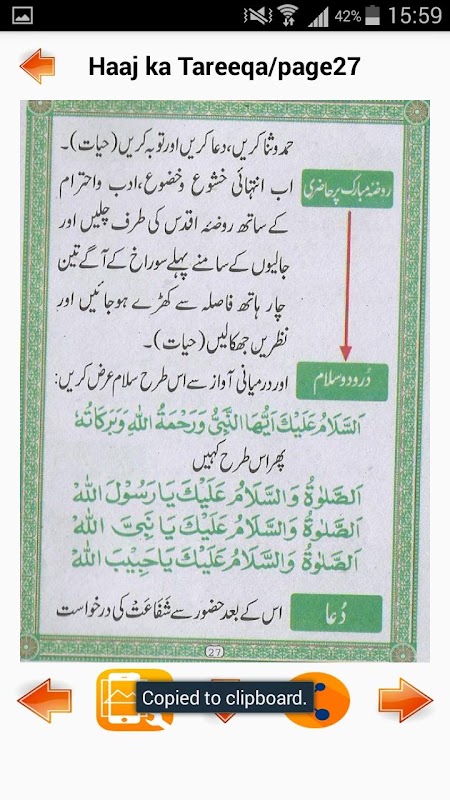 42% 15:59
Haaj ka Tareeqa/page27
حمد و ثنا کریں، دعا کریں اور توبہ کریں (حیات)۔
روضۂ مبارک پر حاضری
اب انتہائی خشوع وخضوع، ادب واحترام
کے ساتھ روضۂ اقدس کی طرف چلیں اور
جالیوں کے سامنے پہلے سوراخ کے آگے تین
چار ہاتھ فاصلہ سے کھڑے ہوجائیں اور
نظریں جھکالیں (حیات)۔
دُرود و سلام
اور درمیانی آواز سے اس طرح سلام عرض کریں:
اَلسَّلَامُ عَلَيْكَ اَيُّهَا النَّبِيُّ وَرَحْمَةُ اللهِ وَبَرَكَاتُهٗ
پھر اس طرح کہیں
اَلصَّلٰوةُ وَالسَّلَامُ عَلَيْكَ يَا رَسُوْلَ اللهْ
اَلصَّلٰوةُ وَالسَّلَامُ عَلَيْكَ يَا نَبِيَّ اللهْ
اَلصَّلٰوةُ وَالسَّلَامُ عَلَيْكَ يَا حَبِيْبَ اللهْ
دُعا
اس کے بعد حضور سے شَفَاعَتْ کی درخواست
27
Copied to clipboard.